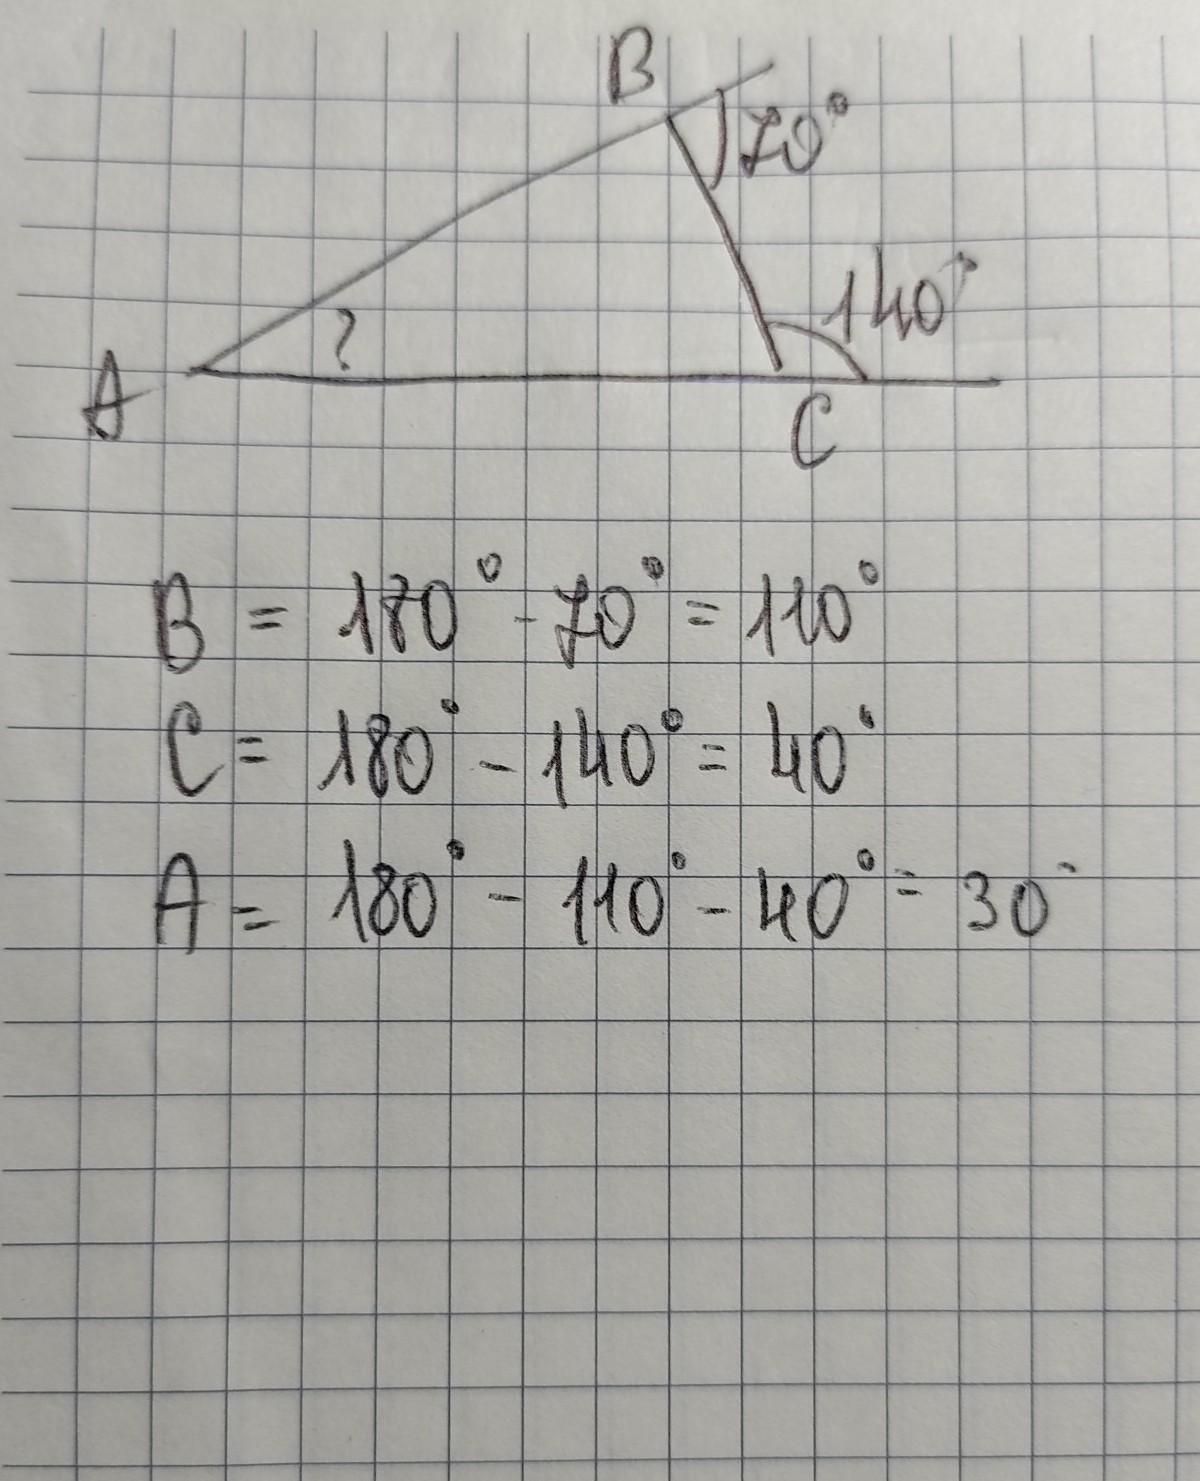 B
70°
140°
?
A
C
B = 180° - 70° = 110°
C = 180° - 140° = 40°
A = 180° - 110° - 40° = 30°